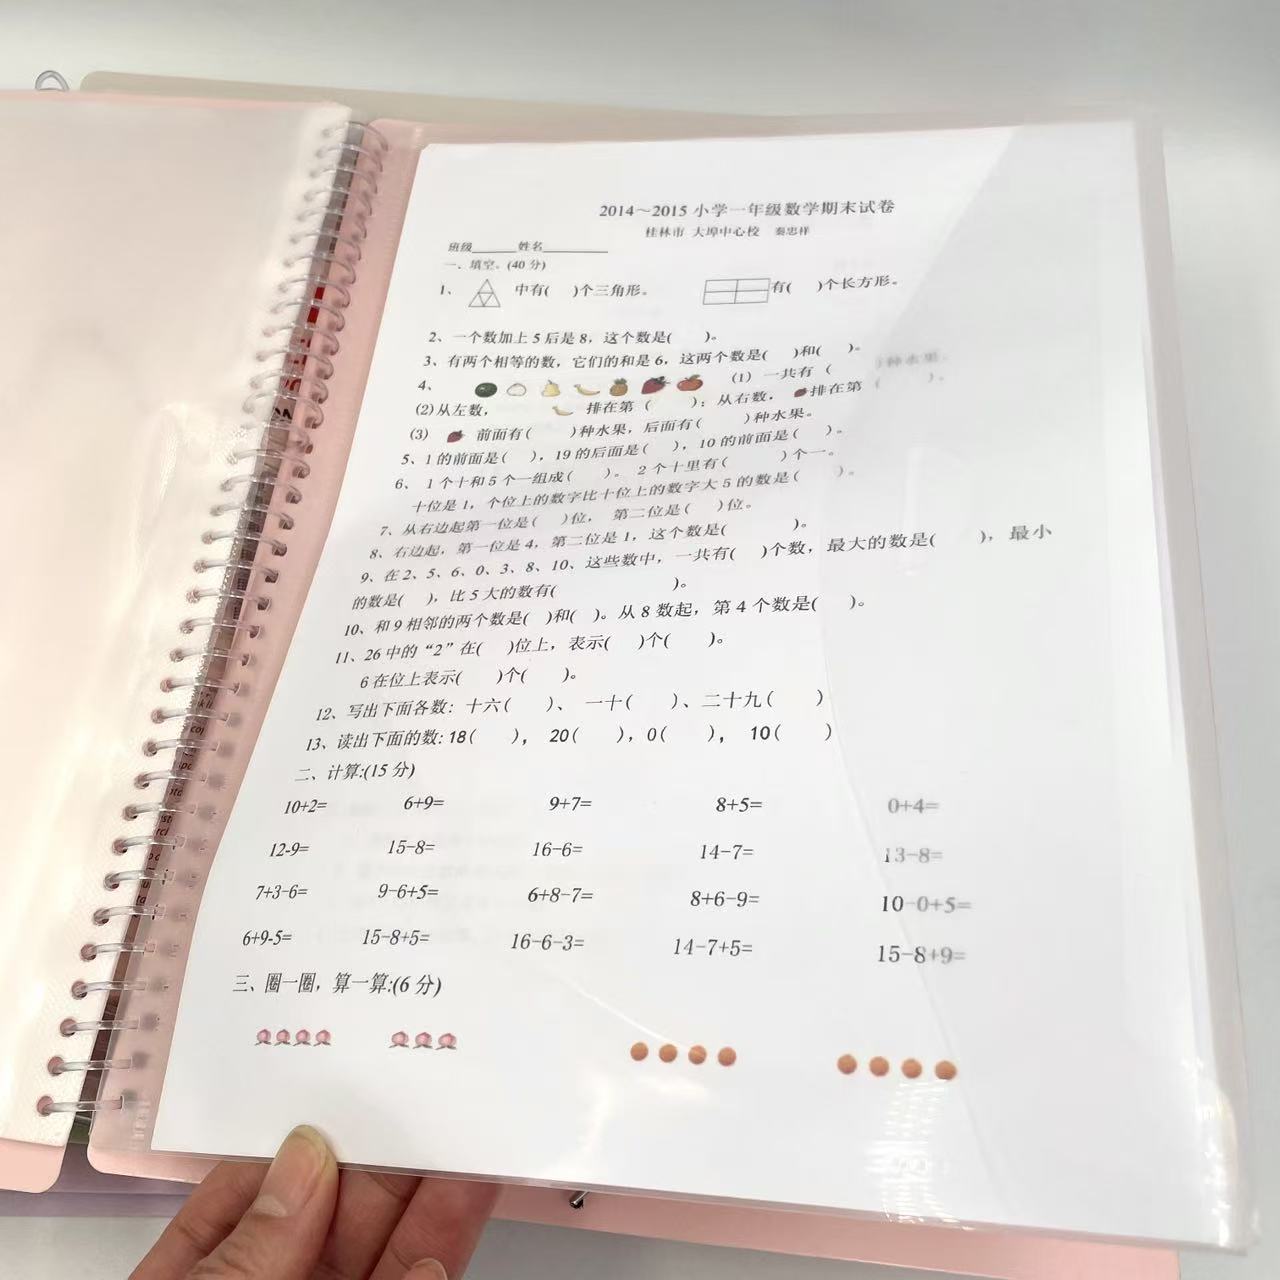 2014～2015 小学一年级数学期末试卷
桂林市 大埠中心校 秦忠祥
班级______姓名_________
一、填空。(40分)
1、 中有( )个三角形。 有( )个长方形。
2、一个数加上5后是8，这个数是( )。
3、有两个相等的数，它们的和是6，这两个数是( )和( )。
4、 (1) 一共有 ( )种水果。
(2)从左数， 排在第 ( )；从右数， 排在第 ( )。
(3) 前面有( )种水果，后面有( )种水果。
5、1的前面是( )，19的后面是( )，10的前面是( )。
6、 1个十和5个一组成( )。 2个十里有( )个一。
十位是1，个位上的数字比十位上的数字大5的数是( )。
7、从右边起第一位是( )位， 第二位是( )位。
8、右边起，第一位是4，第二位是1，这个数是( )。
9、在2、5、6、0、3、8、10、这些数中，一共有( )个数，最大的数是( )，最小
的数是( )，比5大的数有( )。
10、和9相邻的两个数是( )和( )。从8数起，第4个数是( )。
11、26中的“2”在( )位上，表示( )个( )。
6在位上表示( )个( )。
12、写出下面各数: 十六( )、 一十( )、二十九( )
13、读出下面的数: 18( )， 20( )，0( )， 10( )
二、计算:(15分)
10+2= 6+9= 9+7= 8+5= 0+4=
12-9= 15-8= 16-6= 14-7= 13-8=
7+3-6= 9-6+5= 6+8-7= 8+6-9= 10-0+5=
6+9-5= 15-8+5= 16-6-3= 14-7+5= 15-8+9=
三、圈一圈，算一算:(6分)